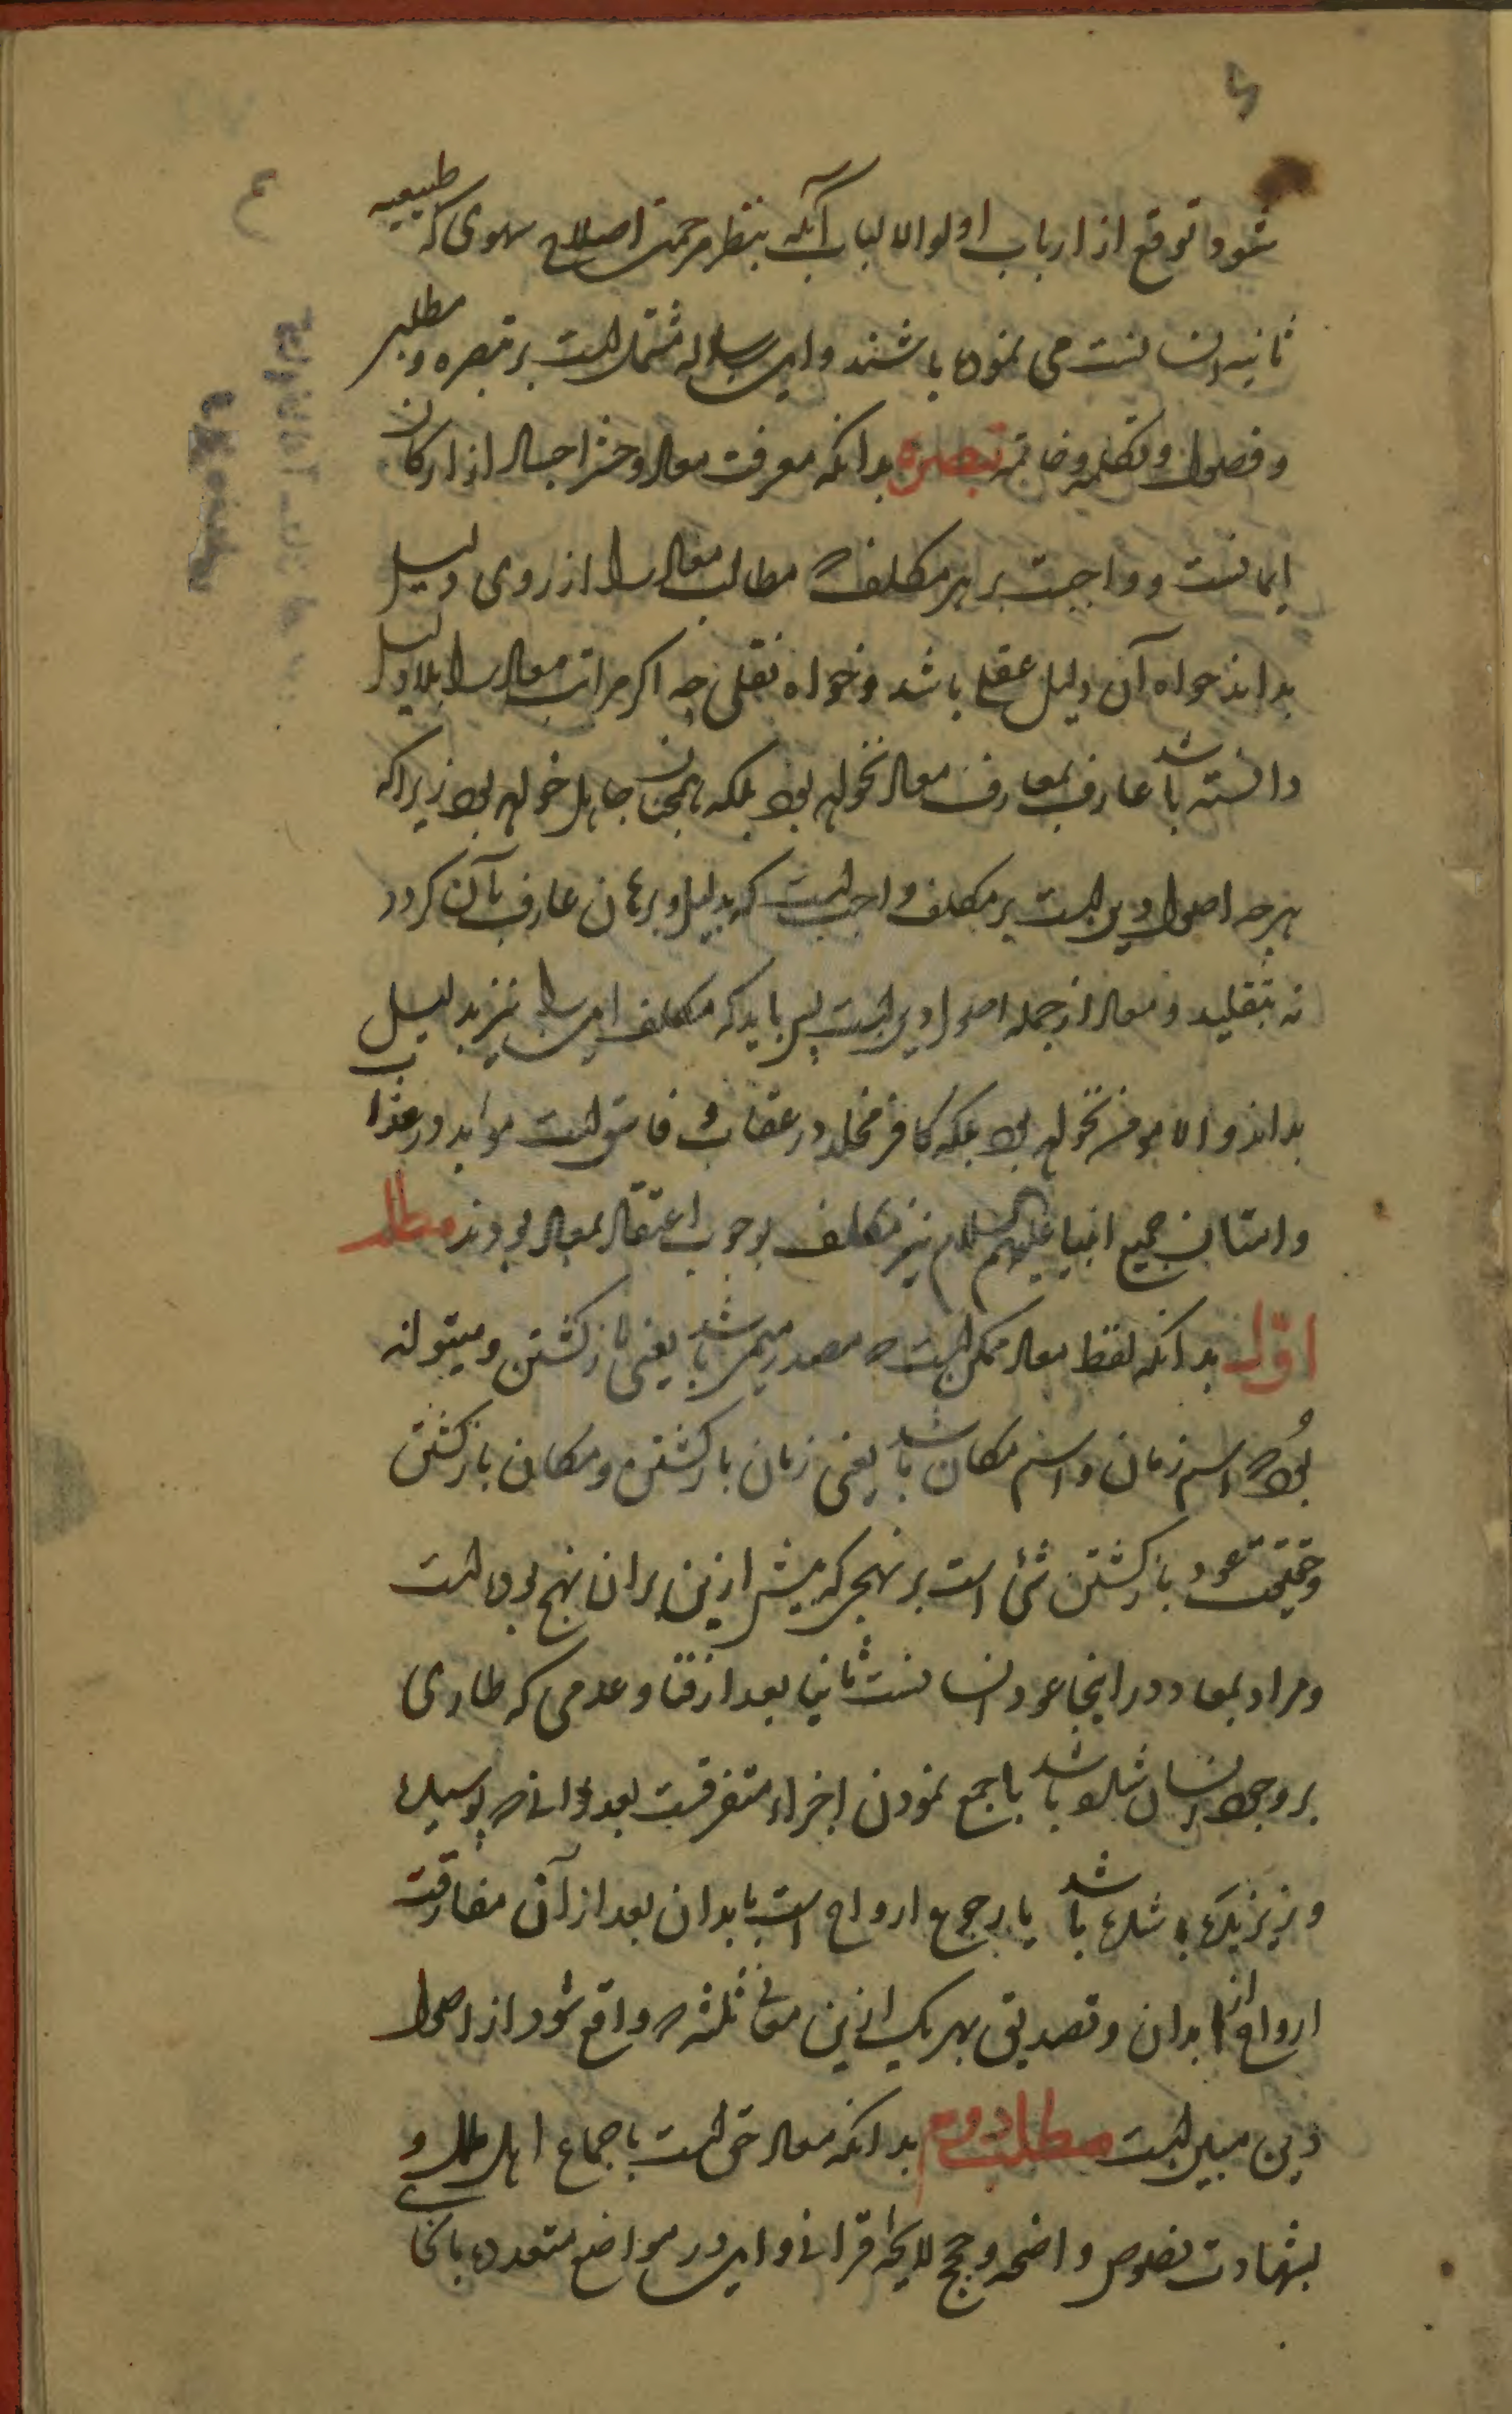 شود و توقع از ارباب اولو الالباب آنکه بنظر مرحمت اصلاح سهوی که طبیعیه
ثانیه انسانست می نموده باشند و این رساله مشتمل است بر تبصره و مطلبی
و فصول و تکلمه و خاتمه تبصره بدانکه معرفت معاد و حشر اجساد از ارکان
ایمانست و واجبست بر هر مکلف که مطالب معاد را از روی دلیل
بداند خواه آن دلیل عقلی باشد و خواه نقلی چه اگر مراتب معاد را بلا دلیل
دانسته باشد عارف بمعارف معاد نخواهد بود بلکه همچنان جاهل خواهد بود زیرا که
هر چه اصول دین است بر مکلف واجب است که بدلیل و برهان عارف بآن گردد
نه بتقلید و معاد از جمله اصول دین است پس باید که مکلف این را نیز بدلیل
بداند و الا مومن نخواهد بود بلکه کافر مخلد در عقاب و فاسق است موابد در عذاب
و امتان جمیع انبیا علیهم السلام نیز مکلف بوجوب اعتقاد بمعاد بودند مطلب
اول بدانکه لفظ معاد ممکن است که مصدر میمی باشد یعنی بازگشتن و میتواند
بود که اسم زمان و اسم مکان باشد یعنی زمان بازگشتن و مکان بازگشتن
و حقیقت عود بازگشتن شی است بر نهجی که پیش ازین بر ان نهج بوده است
و مراد بمعاد در اینجا عود انسانست ثانیا بعد از فنا و عدمی که طاری
بر وجود انسان شده باشد یا جمع نمودن اجزاء متفرقست بعد از انکه پوسیده
و ریزیده شده باشد یا رجوع ارواح است بابدان بعد از آن مفارقت
ارواح از ابدان و تصدیق بهر یک ازین معانی ثلثه که واقع شود از اصول
دین مبین است مطلب دوم بدانکه معاد حق است باجماع اهل ملل و
بشهادت نصوص واضحه و حجج لایحه قرانی و این در مواضع متعدده بانحای